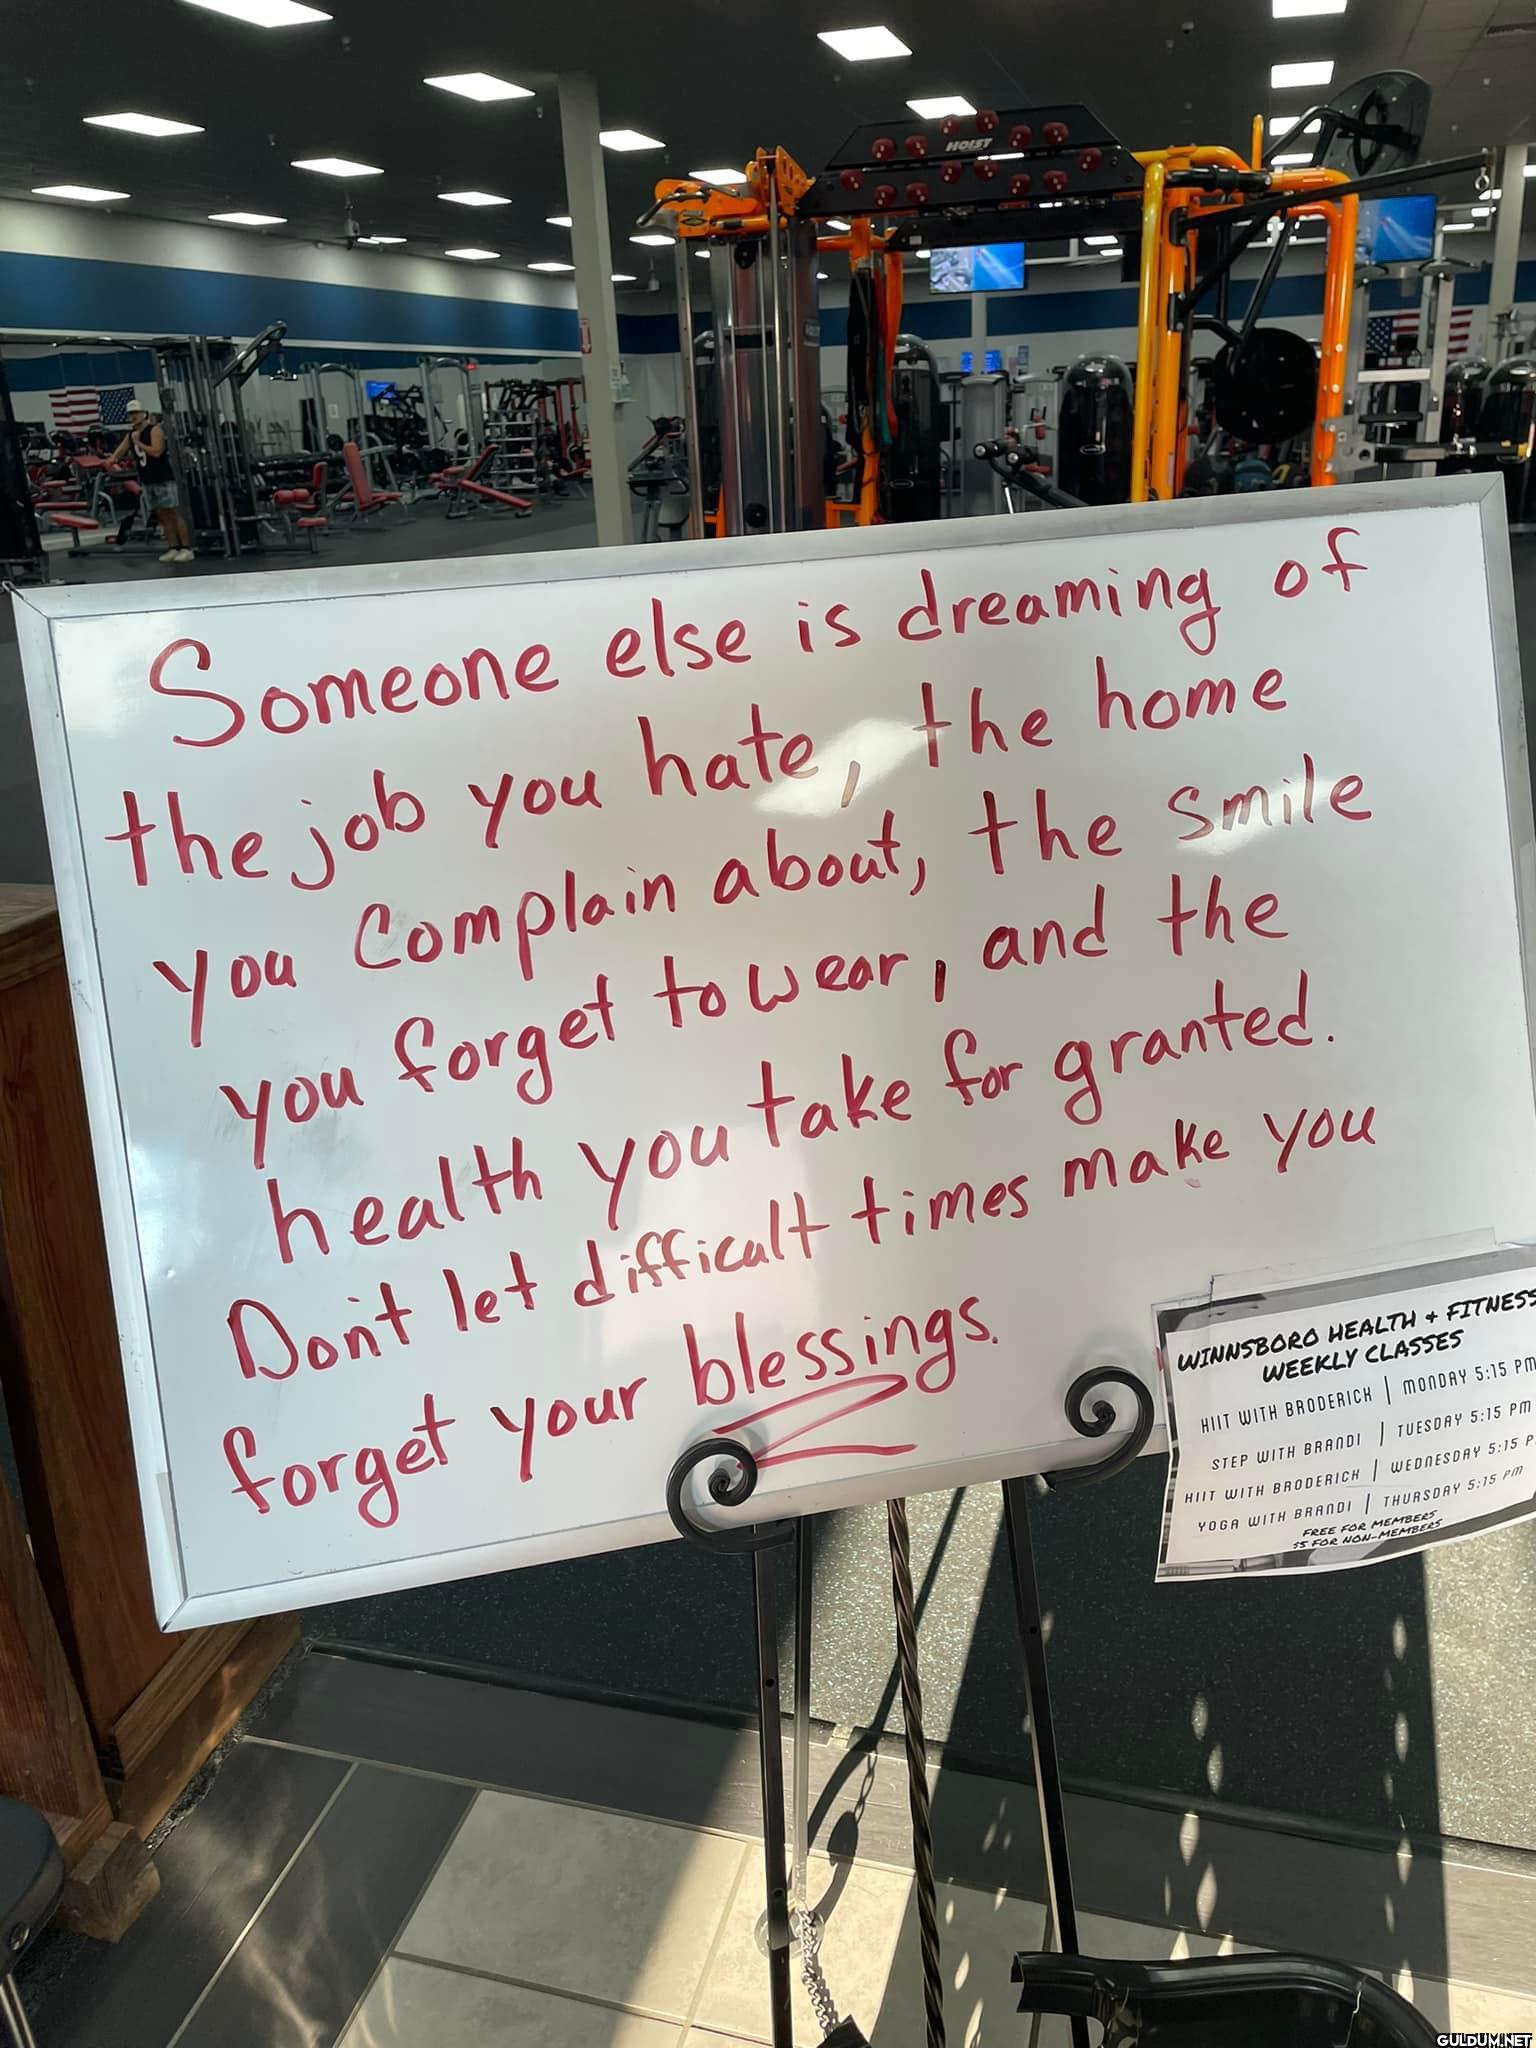 HOIST
Someone else is dreaming of
the job you hate, the home
you Complain about, the smile
you forget to wear, and the
health you take for granted.
Don't let difficult times make you
forget your blessings.
WINNSBORO HEALTH + FITNESS
WEEKLY CLASSES
HIIT WITH BRODERICK | MONDAY 5:15 PM
STEP WITH BRANDI | TUESDAY 5:15 PM
HIIT WITH BRODERICK | WEDNESDAY 5:15 P
YOGA WITH BRANDI | THURSDAY 5:15 PM
FREE FOR MEMBERS
$5 FOR NON-MEMBERS
GULDUM.NET